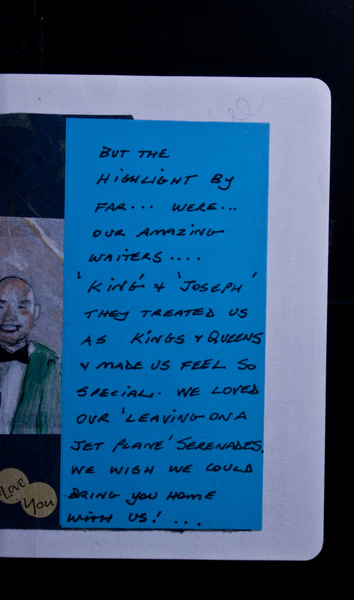 BUT THE
HIGHLIGHT BY
FAR... WERE...
OUR AMAZING
WAITERS....
'KING' & 'JOSEPH'
THEY TREATED US
AS KINGS & QUEENS
& MADE US FEEL SO
SPECIAL. WE LOVED
OUR 'LEAVING ON A
JET PLANE' SERENADES.
WE WISH WE COULD
BRING YOU HOME
WITH US! ...
Love
You